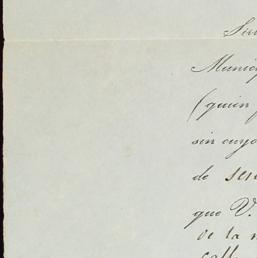 Sir
Munic
(quien
sin cuyo
de ser
que V.
de la
call